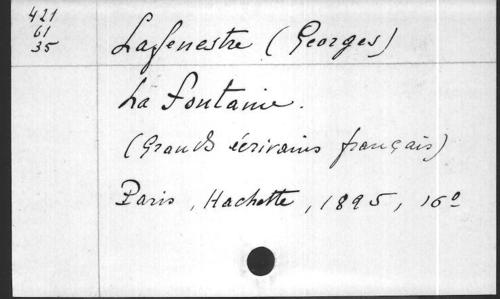 421
61
35
Lafenestre (Georges)
La Fontaine.
(Grands écrivains français)
Paris, Hachette, 1895, 16º